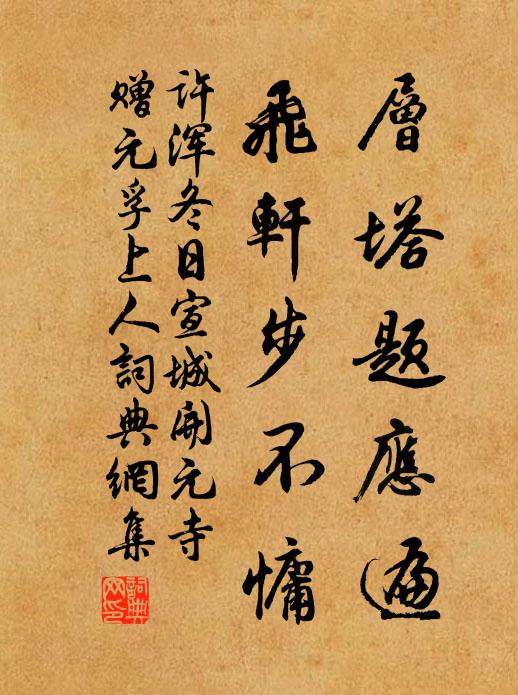 層塔題應遍
飛軒步不慵
许渾冬日宣城開元寺
贈元孚上人詞典網集
詞典
网印